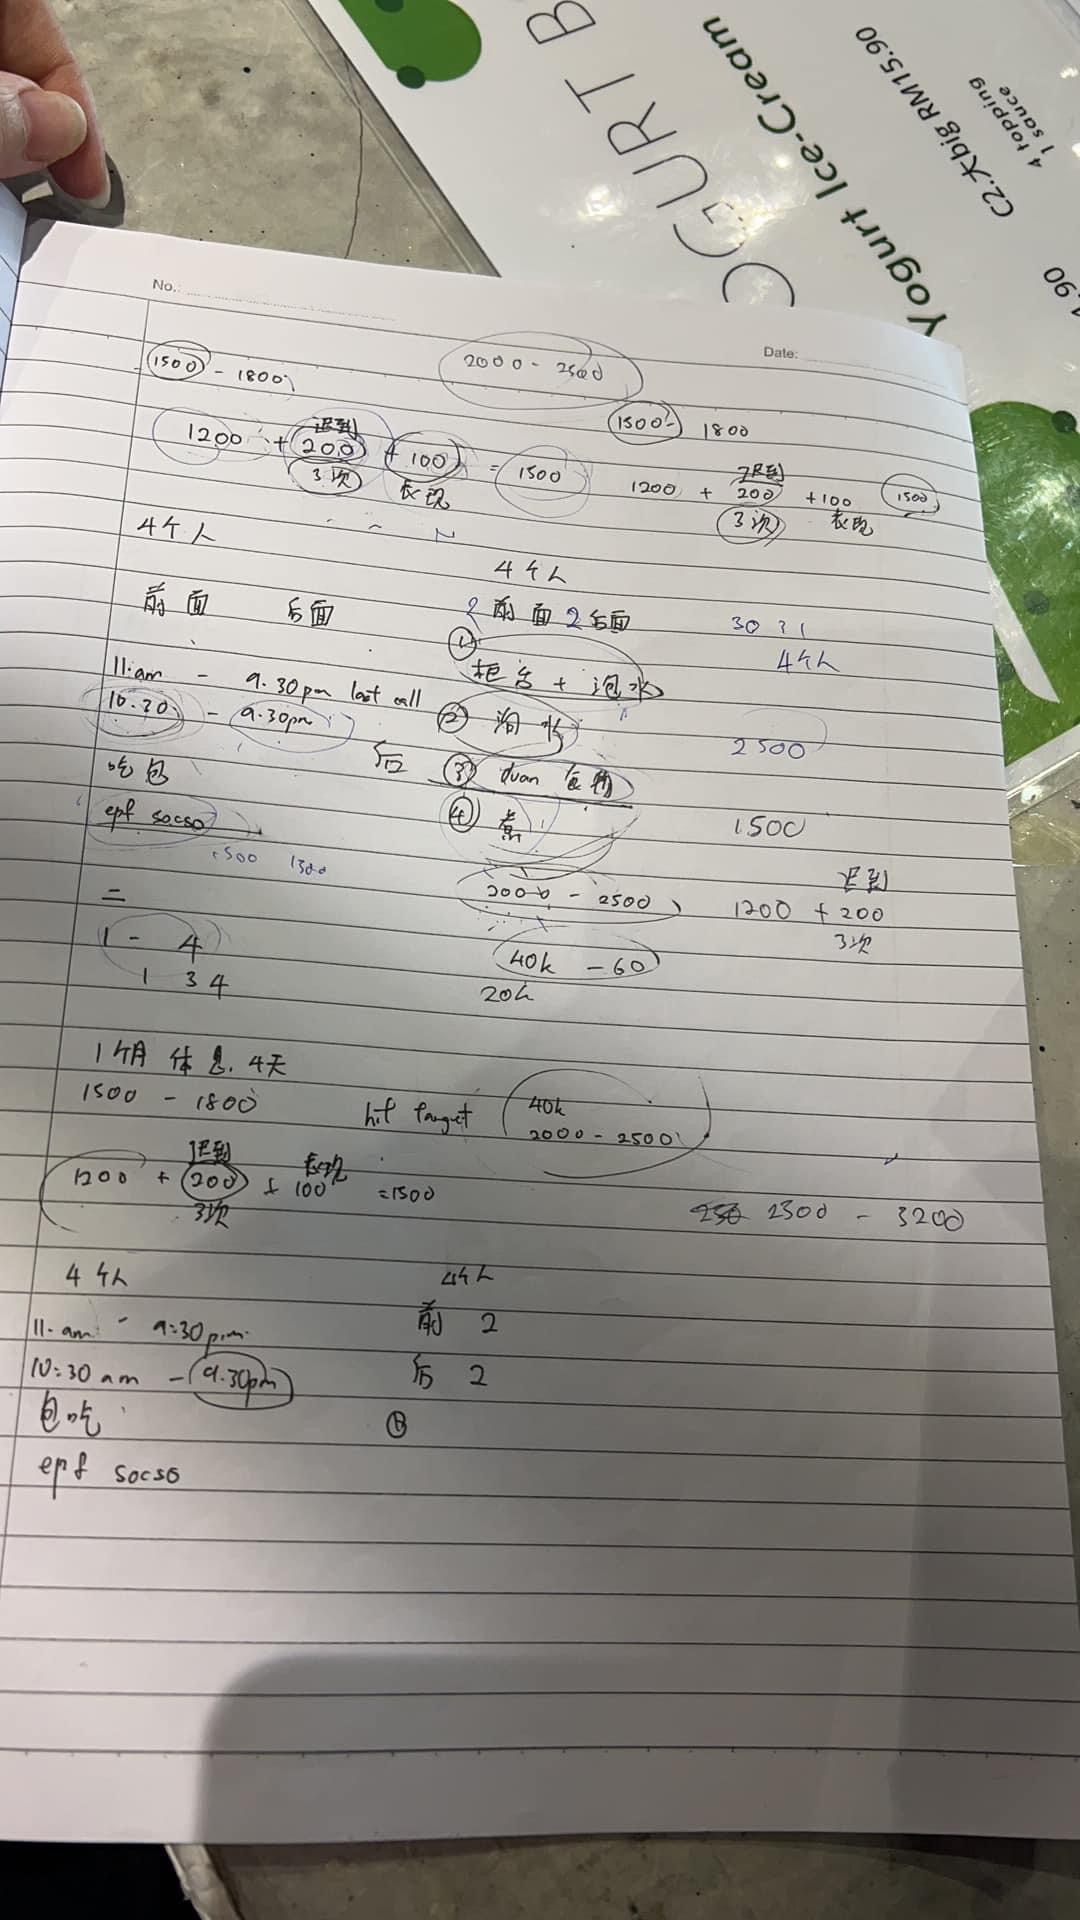 OGURT B
Yogurt Ice-Cream
C2.大big RM15.90
4 topping
1 sauce
.90
No.:
Date:
1500 - 1800
2000 - 2500
1500 - 1800
迟到
1200 + 200 + 100 = 1500
3次 表现
迟到
1200 + 200 + 100 1500
3次 表现
4个人
4个人
前面 后面
2前面 2后面
30 31
4个人
① 柜台 + 泡水
11.am - 9.30pm last call
10.30 - 9.30pm
② 泡水
2500
后 ③ duan 食物
吃包
④ 煮
1500
epf socso
1500 1300
2000 - 2500
迟到
1200 + 200
3次
二
1 - 4
1 3 4
40k - 60
20k
1个月 休息 4天
1500 - 1800
hit target 40k
2000 - 2500
迟到 表现
1200 + 200 + 100 = 1500
3次
2300 - 3200
4个人
4个人
11.am - 9:30pm
前 2
10:30am - 9.30pm
后 2
包吃
epf socso